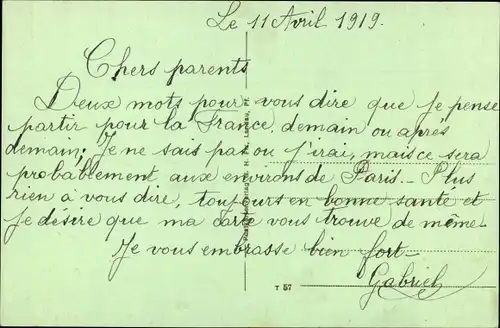 Le 11 Avril 1919.
Chers parents
Deux mots pour vous dire que je pense
partir pour la France, demain ou après
demain; Je ne sais pas ou j'irai, mais ce sera
probablement aux environs de Paris.- Plus
rien a vous dire, toujours en bonne santé et
Je desire que ma carte vous trouve de même.
Je vous embrasse bien fort-
Gabriel
T 57